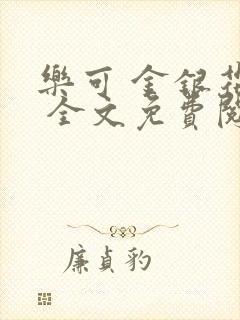 樂可 金銀花
全文免費閱
廉貞豹